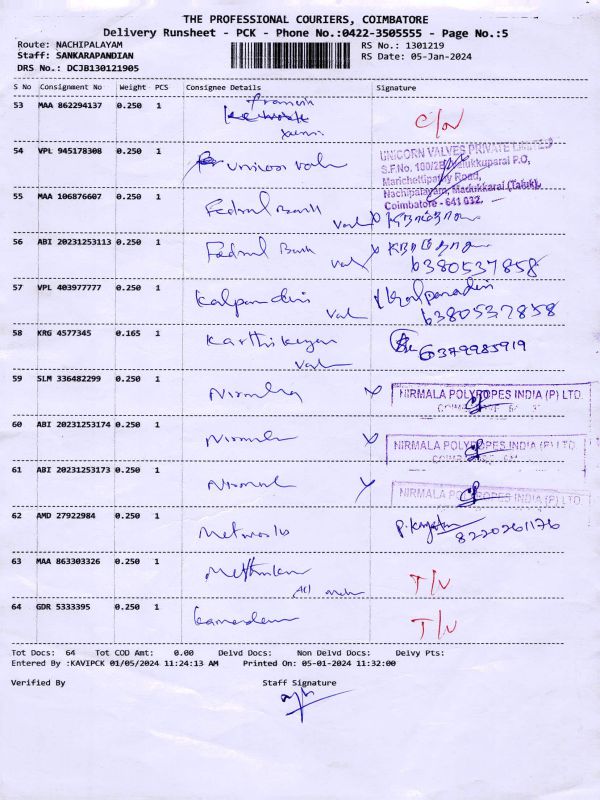 THE PROFESSIONAL COURIERS, COIMBATORE
Delivery Runsheet - PCK - Phone No.:0422-3505555 - Page No.:5
Route: NACHIPALAYAM RS No.: 1301219
Staff: SANKARAPANDIAN RS Date: 05-Jan-2024
DRS No.: DCJB130121905
S No Consignment No Weight PCS Consignee Details Signature
53 MAA 862294137 0.250 1 francis
54 VPL 945178308 0.250 1 Unicorn Valve UNICORN VALVES PRIVATE LIMITED
S.F.No. 100/2B, Palukkuparai P.O,
Marichettipathy Road,
Nachipalayam, Madukkarai (Taluk),
Coimbatore - 641 032.
55 MAA 106876607 0.250 1 Fedral Bank
56 ABI 20231253113 0.250 1 Fedral Bank
6380537858
57 VPL 403977777 0.250 1 Kalpandevi Kalpanadevi
6380537858
58 KRG 4577345 0.165 1 Karthikeyan 6379985919
59 SLM 336482299 0.250 1 Nirmala NIRMALA POLYROPES INDIA (P) LTD.
60 ABI 20231253174 0.250 1 Nirmala NIRMALA POLYROPES INDIA (P) LTD
61 ABI 20231253173 0.250 1 Nirmala NIRMALA POLYROPES INDIA (P) LTD
62 AMD 27922984 0.250 1 8220261176
63 MAA 863303326 0.250 1 T/V
64 GDR 5333395 0.250 1 T/V
Tot Docs: 64 Tot COD Amt: 0.00 Delvd Docs: Non Delvd Docs: Delvy Pts:
Entered By :KAVIPCK 01/05/2024 11:24:13 AM Printed On: 05-01-2024 11:32:00
Verified By Staff Signature